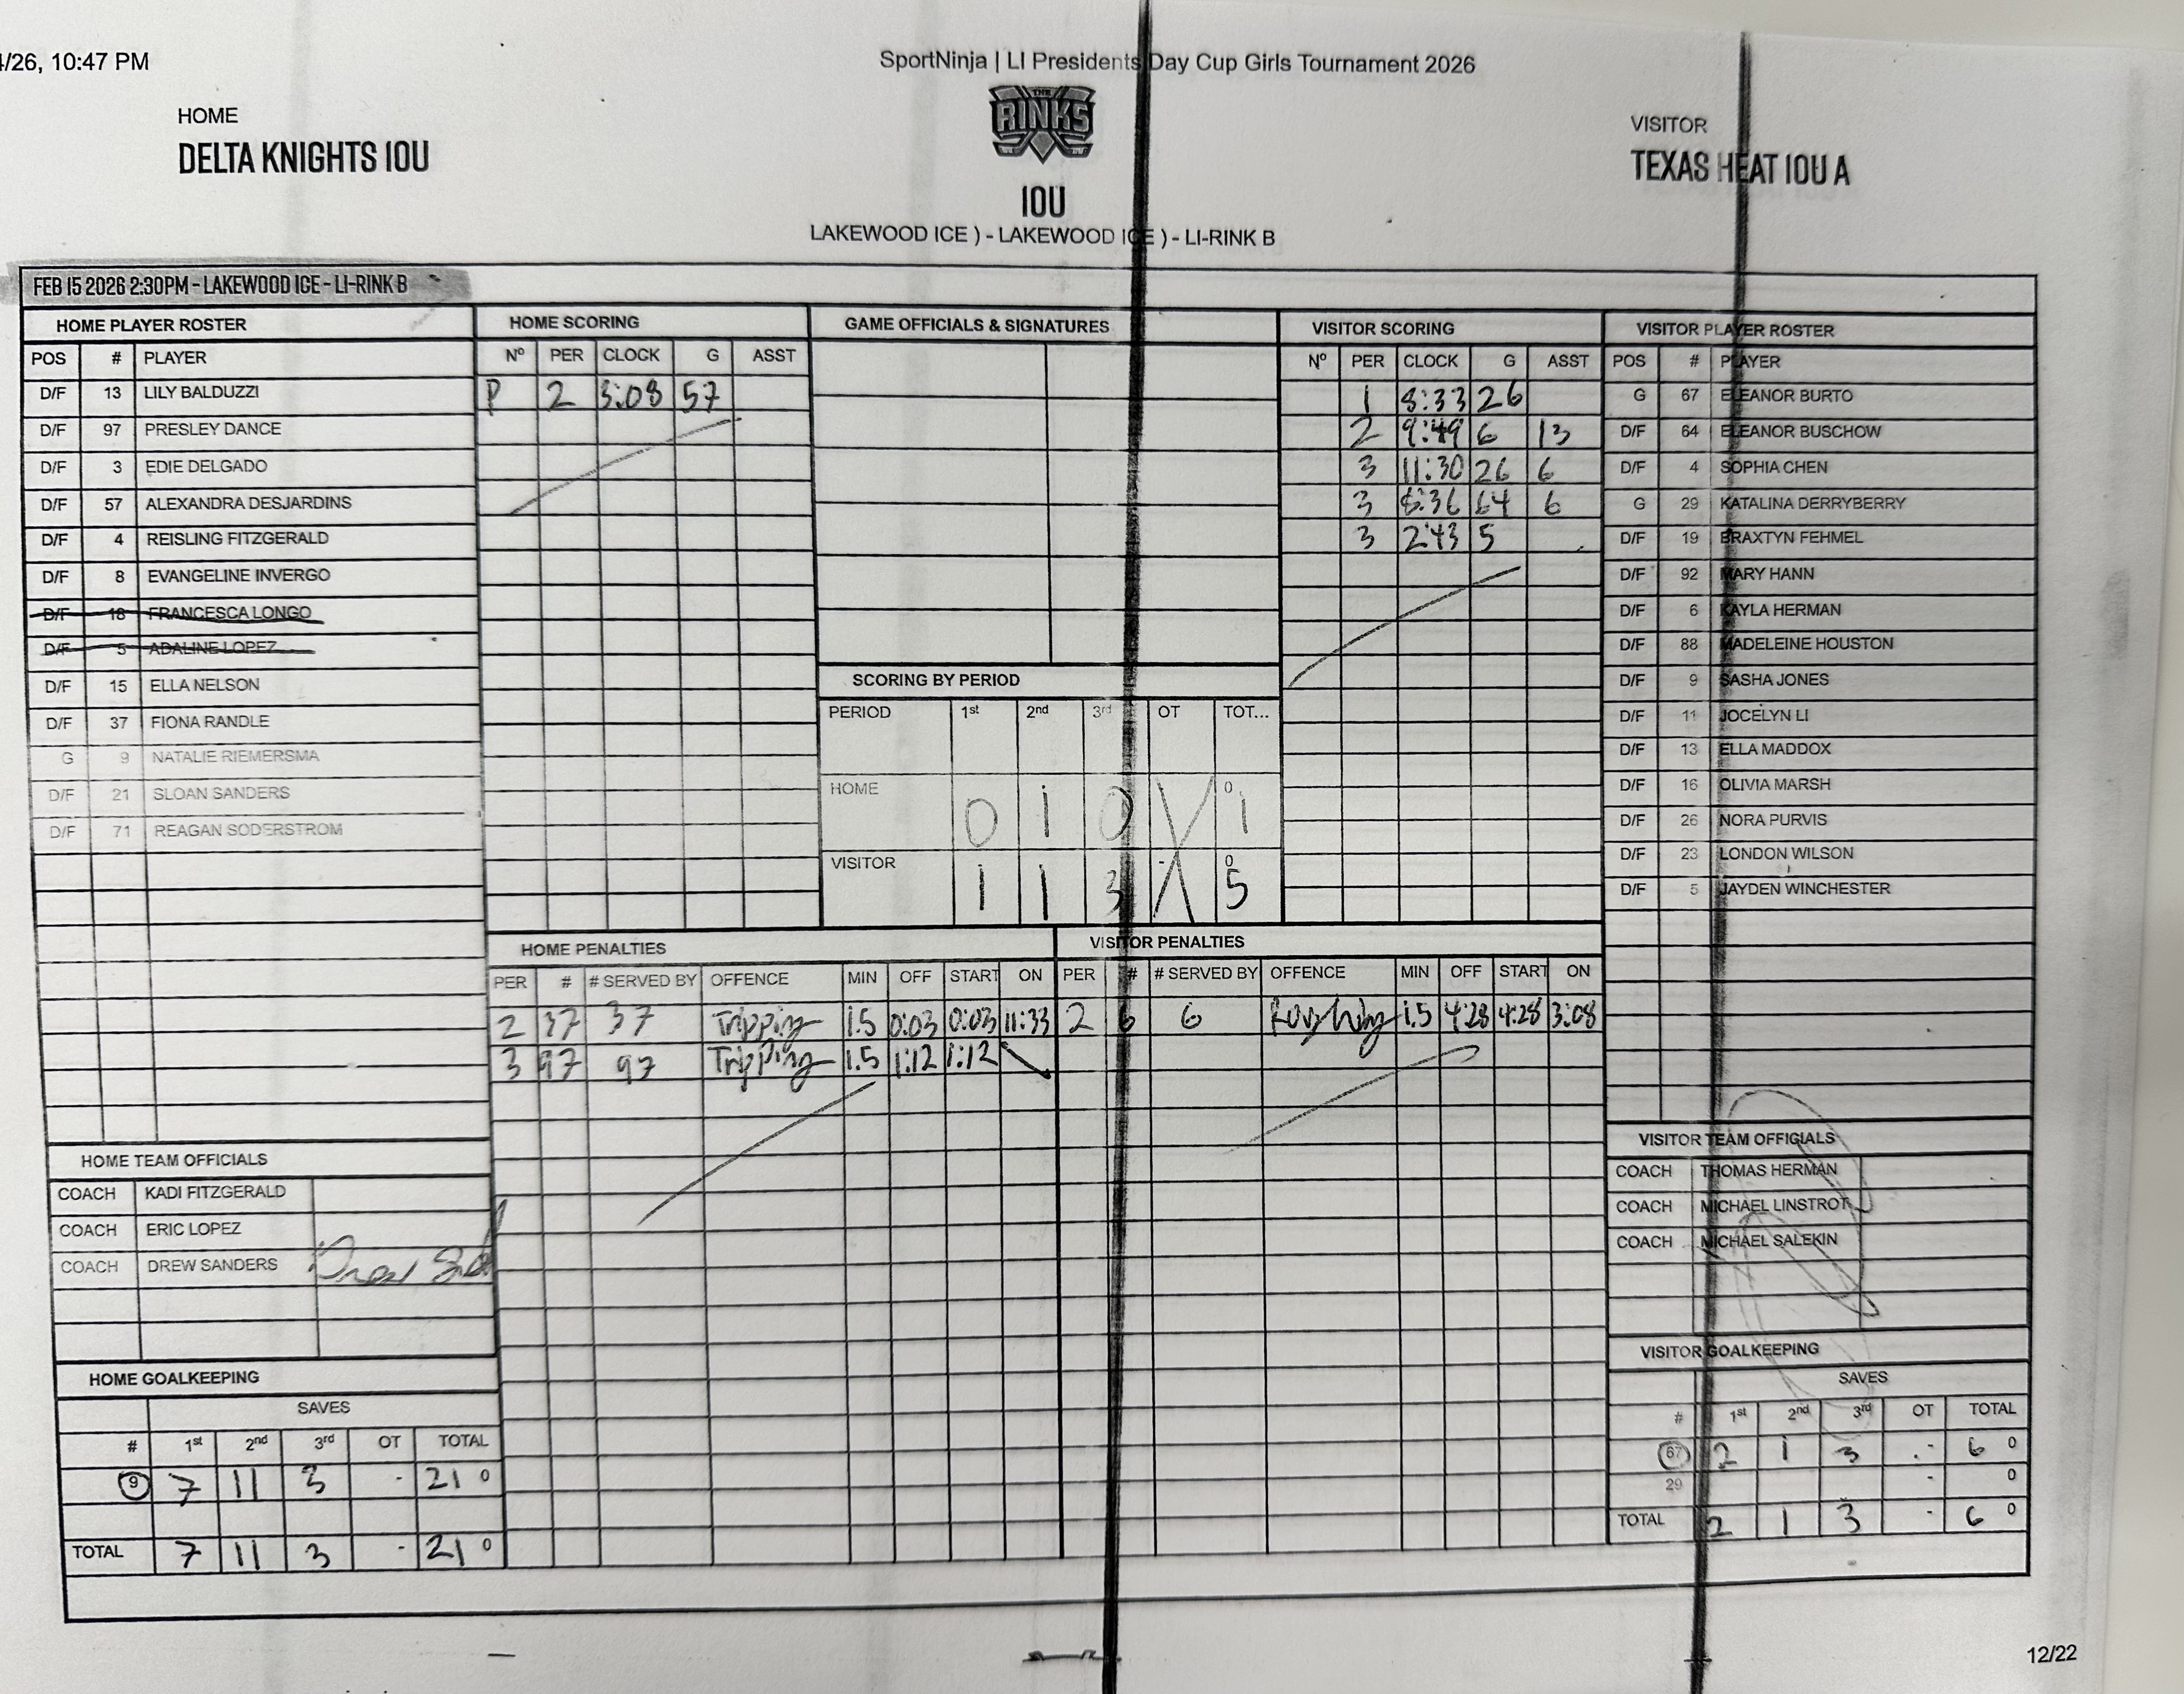 4/26, 10:47 PM
SportNinja | LI Presidents Day Cup Girls Tournament 2026
HOME
DELTA KNIGHTS 10U
THE RINKS
10U
LAKEWOOD ICE ) - LAKEWOOD ICE ) - LI-RINK B
VISITOR
TEXAS HEAT 10U A
FEB 15 2026 2:30PM - LAKEWOOD ICE - LI-RINK B
HOME PLAYER ROSTER
POS # PLAYER
D/F 13 LILY BALDUZZI
D/F 97 PRESLEY DANCE
D/F 3 EDIE DELGADO
D/F 57 ALEXANDRA DESJARDINS
D/F 4 REISLING FITZGERALD
D/F 8 EVANGELINE INVERGO
D/F 18 FRANCESCA LONGO
D/F 5 ADALINE LOPEZ
D/F 15 ELLA NELSON
D/F 37 FIONA RANDLE
G 9 NATALIE RIEMERSMA
D/F 21 SLOAN SANDERS
D/F 71 REAGAN SODERSTROM
HOME SCORING
Nº PER CLOCK G ASST
P 2 3:08 57
GAME OFFICIALS & SIGNATURES
SCORING BY PERIOD
PERIOD 1st 2nd 3rd OT TOT...
HOME 0 1 0 0 1
VISITOR 1 1 3 - 0 5
VISITOR SCORING
Nº PER CLOCK G ASST
1 8:33 26
2 9:49 6 13
3 11:30 26 6
3 8:36 64 6
3 2:43 5
VISITOR PLAYER ROSTER
POS # PLAYER
G 67 ELEANOR BURTO
D/F 64 ELEANOR BUSCHOW
D/F 4 SOPHIA CHEN
G 29 KATALINA DERRYBERRY
D/F 19 BRAXTYN FEHMEL
D/F 92 MARY HANN
D/F 6 KAYLA HERMAN
D/F 88 MADELEINE HOUSTON
D/F 9 SASHA JONES
D/F 11 JOCELYN LI
D/F 13 ELLA MADDOX
D/F 16 OLIVIA MARSH
D/F 26 NORA PURVIS
D/F 23 LONDON WILSON
D/F 5 JAYDEN WINCHESTER
HOME PENALTIES
PER # # SERVED BY OFFENCE MIN OFF START ON
2 37 37 Tripping 1.5 0:03 0:03 11:33
3 97 97 Tripping 1.5 1:12 1:12
VISITOR PENALTIES
PER # # SERVED BY OFFENCE MIN OFF START ON
2 6 6 Roughing 1.5 4:28 4:28 3:08
HOME TEAM OFFICIALS
COACH KADI FITZGERALD
COACH ERIC LOPEZ
COACH DREW SANDERS
HOME GOALKEEPING
SAVES
# 1st 2nd 3rd OT TOTAL
9 7 11 3 - 21 0
TOTAL 7 11 3 - 21 0
VISITOR TEAM OFFICIALS
COACH THOMAS HERMAN
COACH MICHAEL LINSTROT
COACH MICHAEL SALEKIN
VISITOR GOALKEEPING
SAVES
# 1st 2nd 3rd OT TOTAL
67 2 1 3 - 6 0
29 - 0
TOTAL 2 1 3 - 6 0
12/22